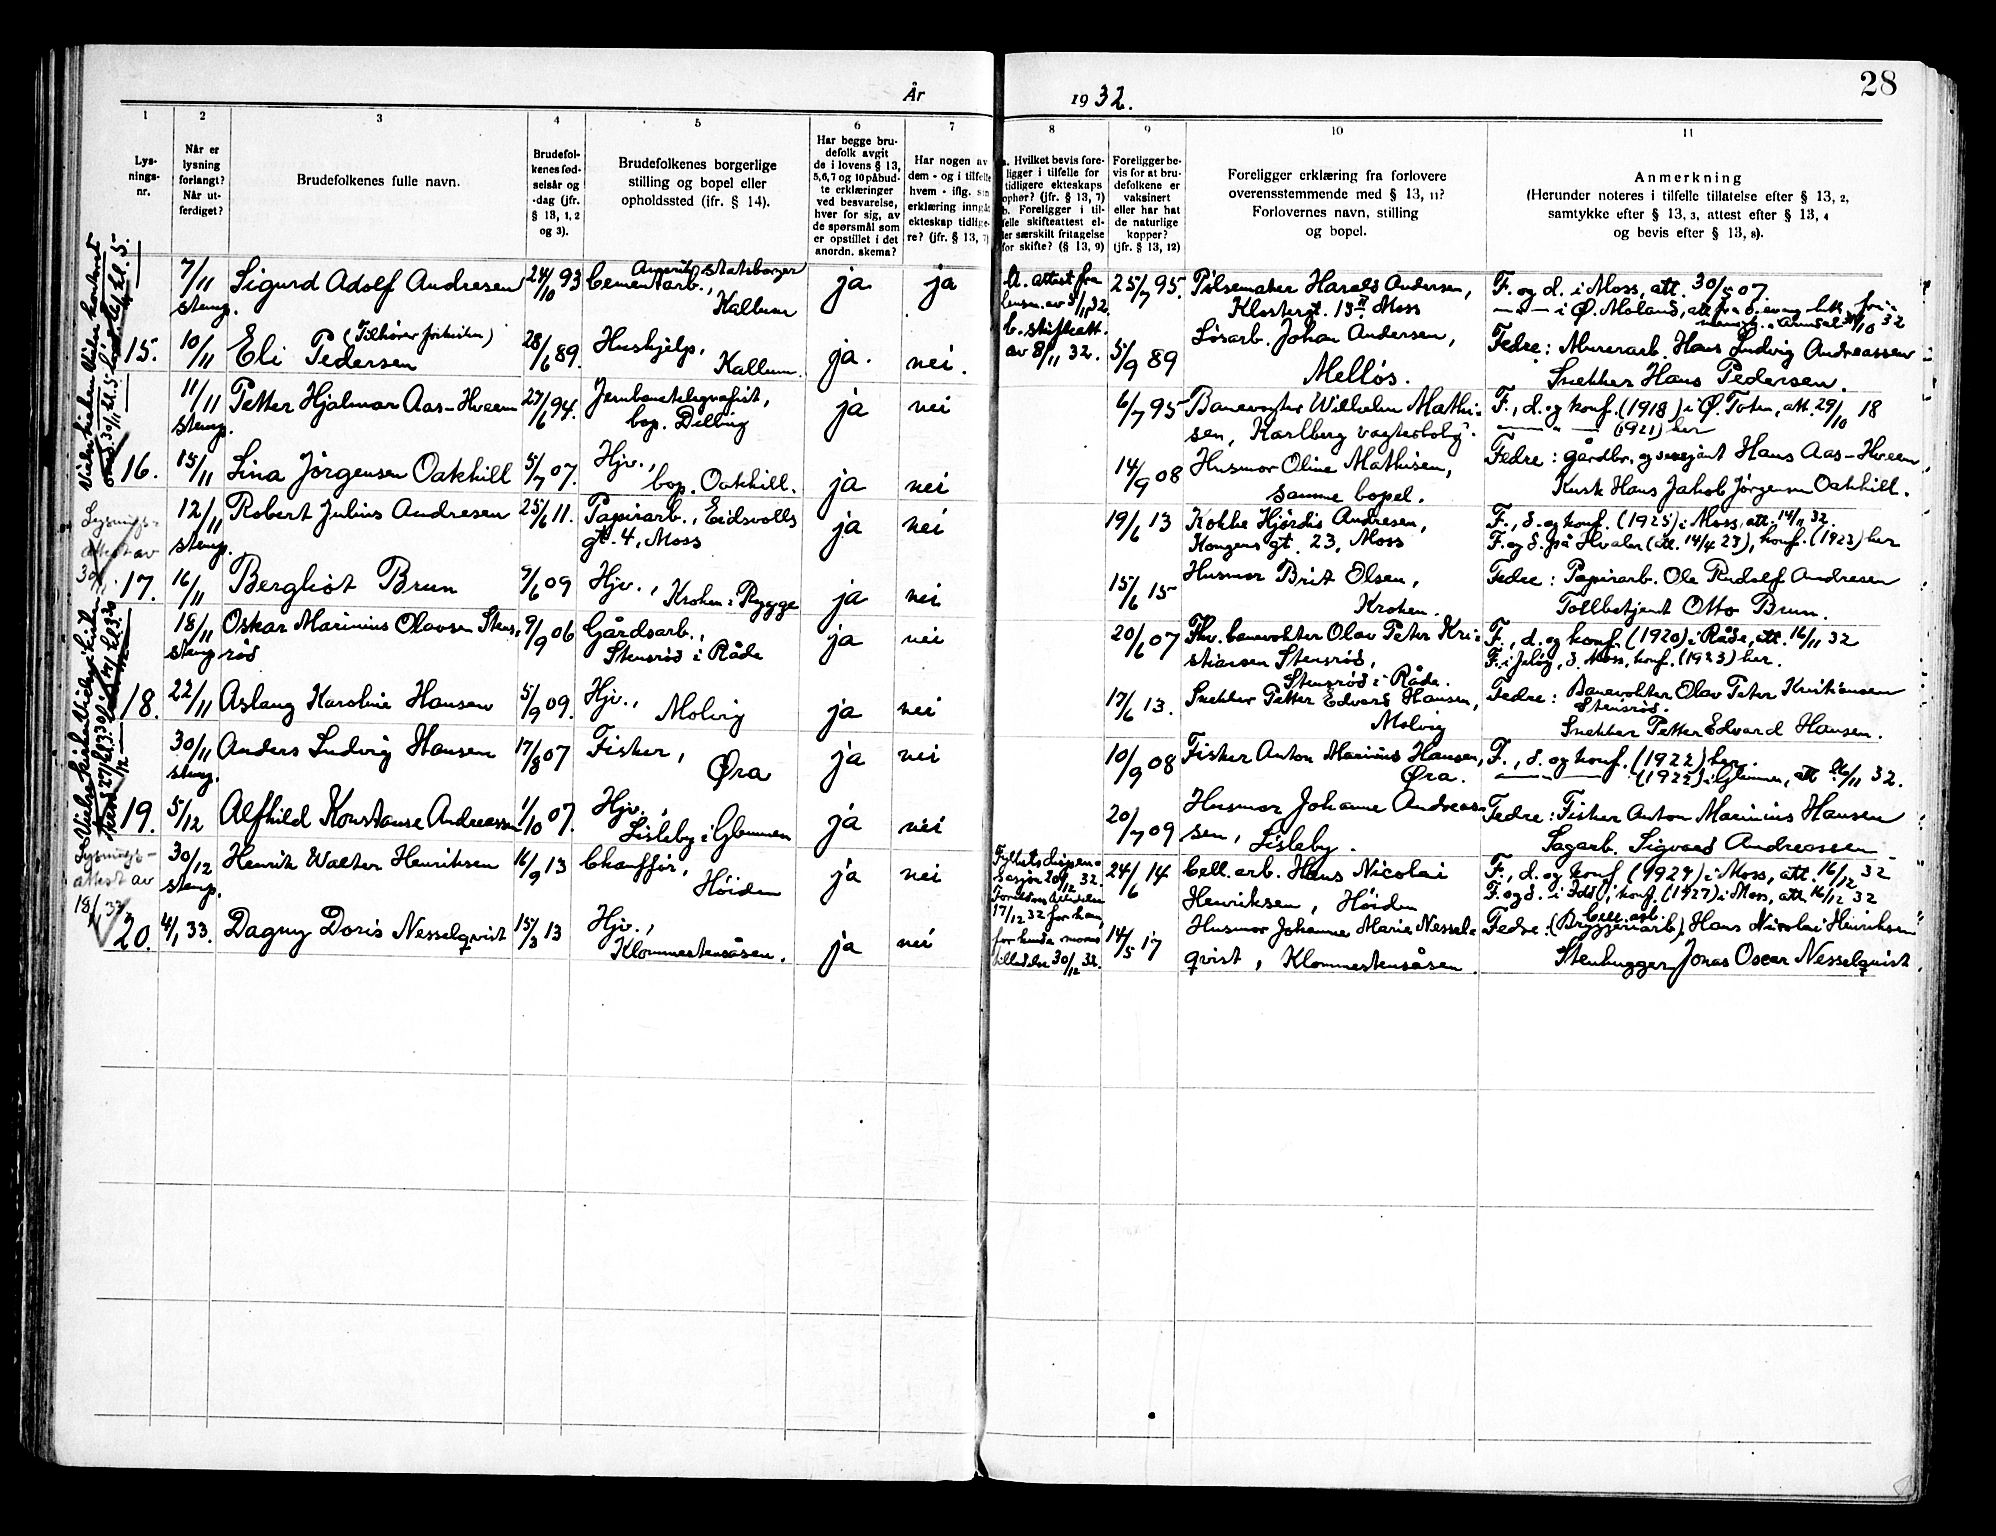 28
År 1932.
1 2 3 4 5 6 7 8 9 10 11
Lys-
nings-
nr.
Når er
lysning
forlangt?
Når ut-
ferdiget?
Brudefolkenes fulle navn.
Brudefol-
kenes fød-
selsår og
-dag (jfr.
§ 13, 1, 2
og 3).
Brudefolkenes borgerlige
stilling og bopel eller
opholdssted (ifr. § 14).
Har begge bru-
defolk avgit
de i lovens § 13,
5,6,7 og 10 påbud-
te erklæringer
ved besvarelse,
hver for sig, av
de spørsmål som
er opstillet i det
anordn. skema?
Har nogen av
dem - og i tilfelle
hvem - iflg. sin
erklæring inngåt
ekteskap tidlige-
re? (jfr. § 13, 7)
a. Hvilket bevis fore-
ligger i tilfelle for
tidligere ekteskaps
ophør? (jfr. § 13, 7)
b. Foreligger i til-
felle skifteattest el-
ler særskilt fritagelse
for skifte? (§ 13, 9)
Foreligger be-
vis for at bru-
defolkene er
vaksinert
eller har hat
de naturlige
kopper?
(jfr. § 13, 12)
Foreligger erklæring fra forlovere
overensstemmende med § 13, 11?
Forlovernes navn, stilling
og bopel.
Anmerkning
(Herunder noteres i tilfelle tillatelse efter § 13, 2,
samtykke efter § 13, 3, attest efter § 13, 4
og bevis efter § 13, 8).
7/11 Sigurd Adolf Andresen 24/10 93 Cementarb., Amerik. statsborger ja ja
stemp. Kallum
a. attest fra
b. skifteatt.
av 8/11 32.
25/7 95. Pølsemaker Harald Andersen,
Klostergt. 13 II Moss
F. og d. i Moss, att. 30/5 07
15. 10/11 Eli Pedersen 28/6 89. Hushjelp, Kallum. ja. nei.
5/9 89 Løsarb. Johan Andersen,
Melløs.
Fedre: Murerarb. Hans Ludvig Andreassen
Snekker Hans Pedersen.
11/11 Petter Hjalmar Aas-Hveem 27/6 94. Jernbanetelegrafist, ja nei
stemp. bop. Dilling
6/7 95 Banevogter Wilhelm Mathi-
sen, Karlberg vagterbolig.
F., d. og konf. (1918) i Ø. Toten, att. 29/10 18
— — — (1921) her
16. 15/11 Lina Jørgensen Oakhill 5/7 07. Hjv., ja nei
bop. Oakhill.
14/9 08 Husmor Oline Mathisen,
samme bopel.
Fedre: gårdbr. og sersjant Hans Aas-Hveem
Kusk Hans Jakob Jørgensen Oakhill.
Lysnings-
attest av
12/11 Robert Julius Andresen 25/6 11. Papirarb., Eidsvolls ja nei
stemp. gt. 4, Moss
19/6 13 Kokke Hjørdis Andresen,
Kongens gt. 23, Moss
F., d. og konf. (1925) i Moss, att. 14/11 32.
F. og d. på Hvaler (att. 14/4 23), konf. (1923) her
17. 16/11 Bergliot Brun 7/6 09 Hjv., Kroken i Rygge ja nei
15/6 15 Husmor Brit Olsen,
Kroken.
Fedre: Papirarb. Ole Rudolf Andresen
Tollbetjent Otto Brun.
18/11 Oskar Marinius Olavsen Stens- 9/9 06 Gårdsarb., ja nei
stemp rød Stensrød i Råde
20/6 07 Fhv. banevokter Olav Peter Kri-
stiansen Stensrød,
Stensrød i Råde.
F., d. og konf. (1920) i Råde, att. 16/11 32
F. i Jeløy, d. Moss, konf. (1923) her.
18. 22/11 Aslaug Karoline Hansen 5/9 09. Hjv., Molvig ja nei
17/6 13. Snekker Petter Edvard Hansen,
Molvig
Fedre: Banevokter Olav Peter Kristiansen
Stensrød.
Snekker Petter Edvard Hansen.
30/11 Anders Ludvig Hansen 17/8 07 Fisker, Øra ja nei
stemp.
10/9 08 Fisker Anton Marinius Hansen,
Øra.
F., d. og konf. (1922) her.
— — — (1922) i Glemmen, att 26/11 32.
19. 5/12 Alfhild Konstanse Andreassen 1/10 07. Hjv., ja nei
Lisleby i Glemmen
20/7 09 Husmor Johanne Andreas-
sen, Lisleby.
Fedre: Fisker Anton Marinius Hansen
Sagarb. Sigvard Andreassen
Lysnings-
attest av
18/1 33
30/12 Henrik Walter Henriksen 16/9 13 Chauffør, Høiden ja nei
stemp.
Fylkets dispen-
sasjon 20/12 32.
17/12 32 for ham,
for henne mors
tilladelse 30/12 32.
24/6 14 Cell. arb. Hans Nicolai
Henriksen, Høiden
F., d. og konf. (1927) i Moss, att. 16/12 32
F. og d. i Idd, konf. (1927) i Moss, att. 16/12 32
20. 4/1 33. Dagny Doris Nesselqvist 15/3 13 Hjv., ja nei
Klommestensåsen.
14/5 17 Husmor Johanne Marie Nessel-
qvist, Klommestensåsen.
Cell. arb.
Fedre: (Bryggeriarb), Hans Nicolai Henriksen
Stenhugger Jonas Oscar Nesselqvist